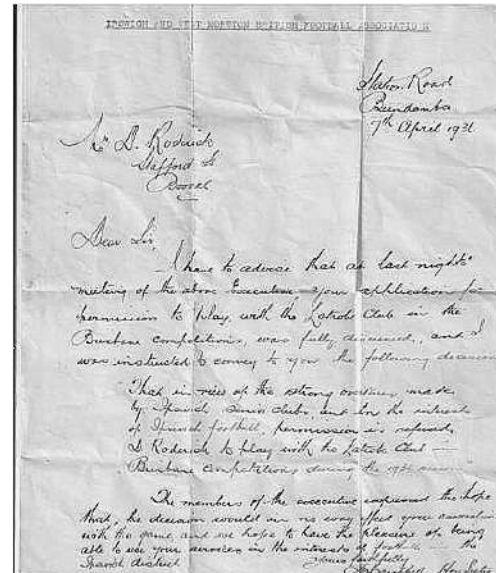 IPSWICH AND WEST MORETON BRITISH FOOTBALL ASSOCIATION
Station Road
Bundamba
7th April 1931
Mr D. Roderick
Stafford St
Booval
Dear Sir,
I have to advise that at last night's
meeting of the above Executive your application for
permission to play with the Latrobe Club in the
Brisbane competitions, was fully discussed, and I
was instructed to convey to you the following decision
That in view of the strong overtures made
by Ipswich senior clubs, and in the interests
of Ipswich football, permission is refused
D Roderick to play with the Latrobe Club in
Brisbane Competitions during the season
The members of the executive expressed the hope
that, his decision would in no way affect your association
with the game, and we hope to have the pleasure of being
able to use your services in the interests of football in the
Ipswich district.
Yours faithfully
Hon Sec